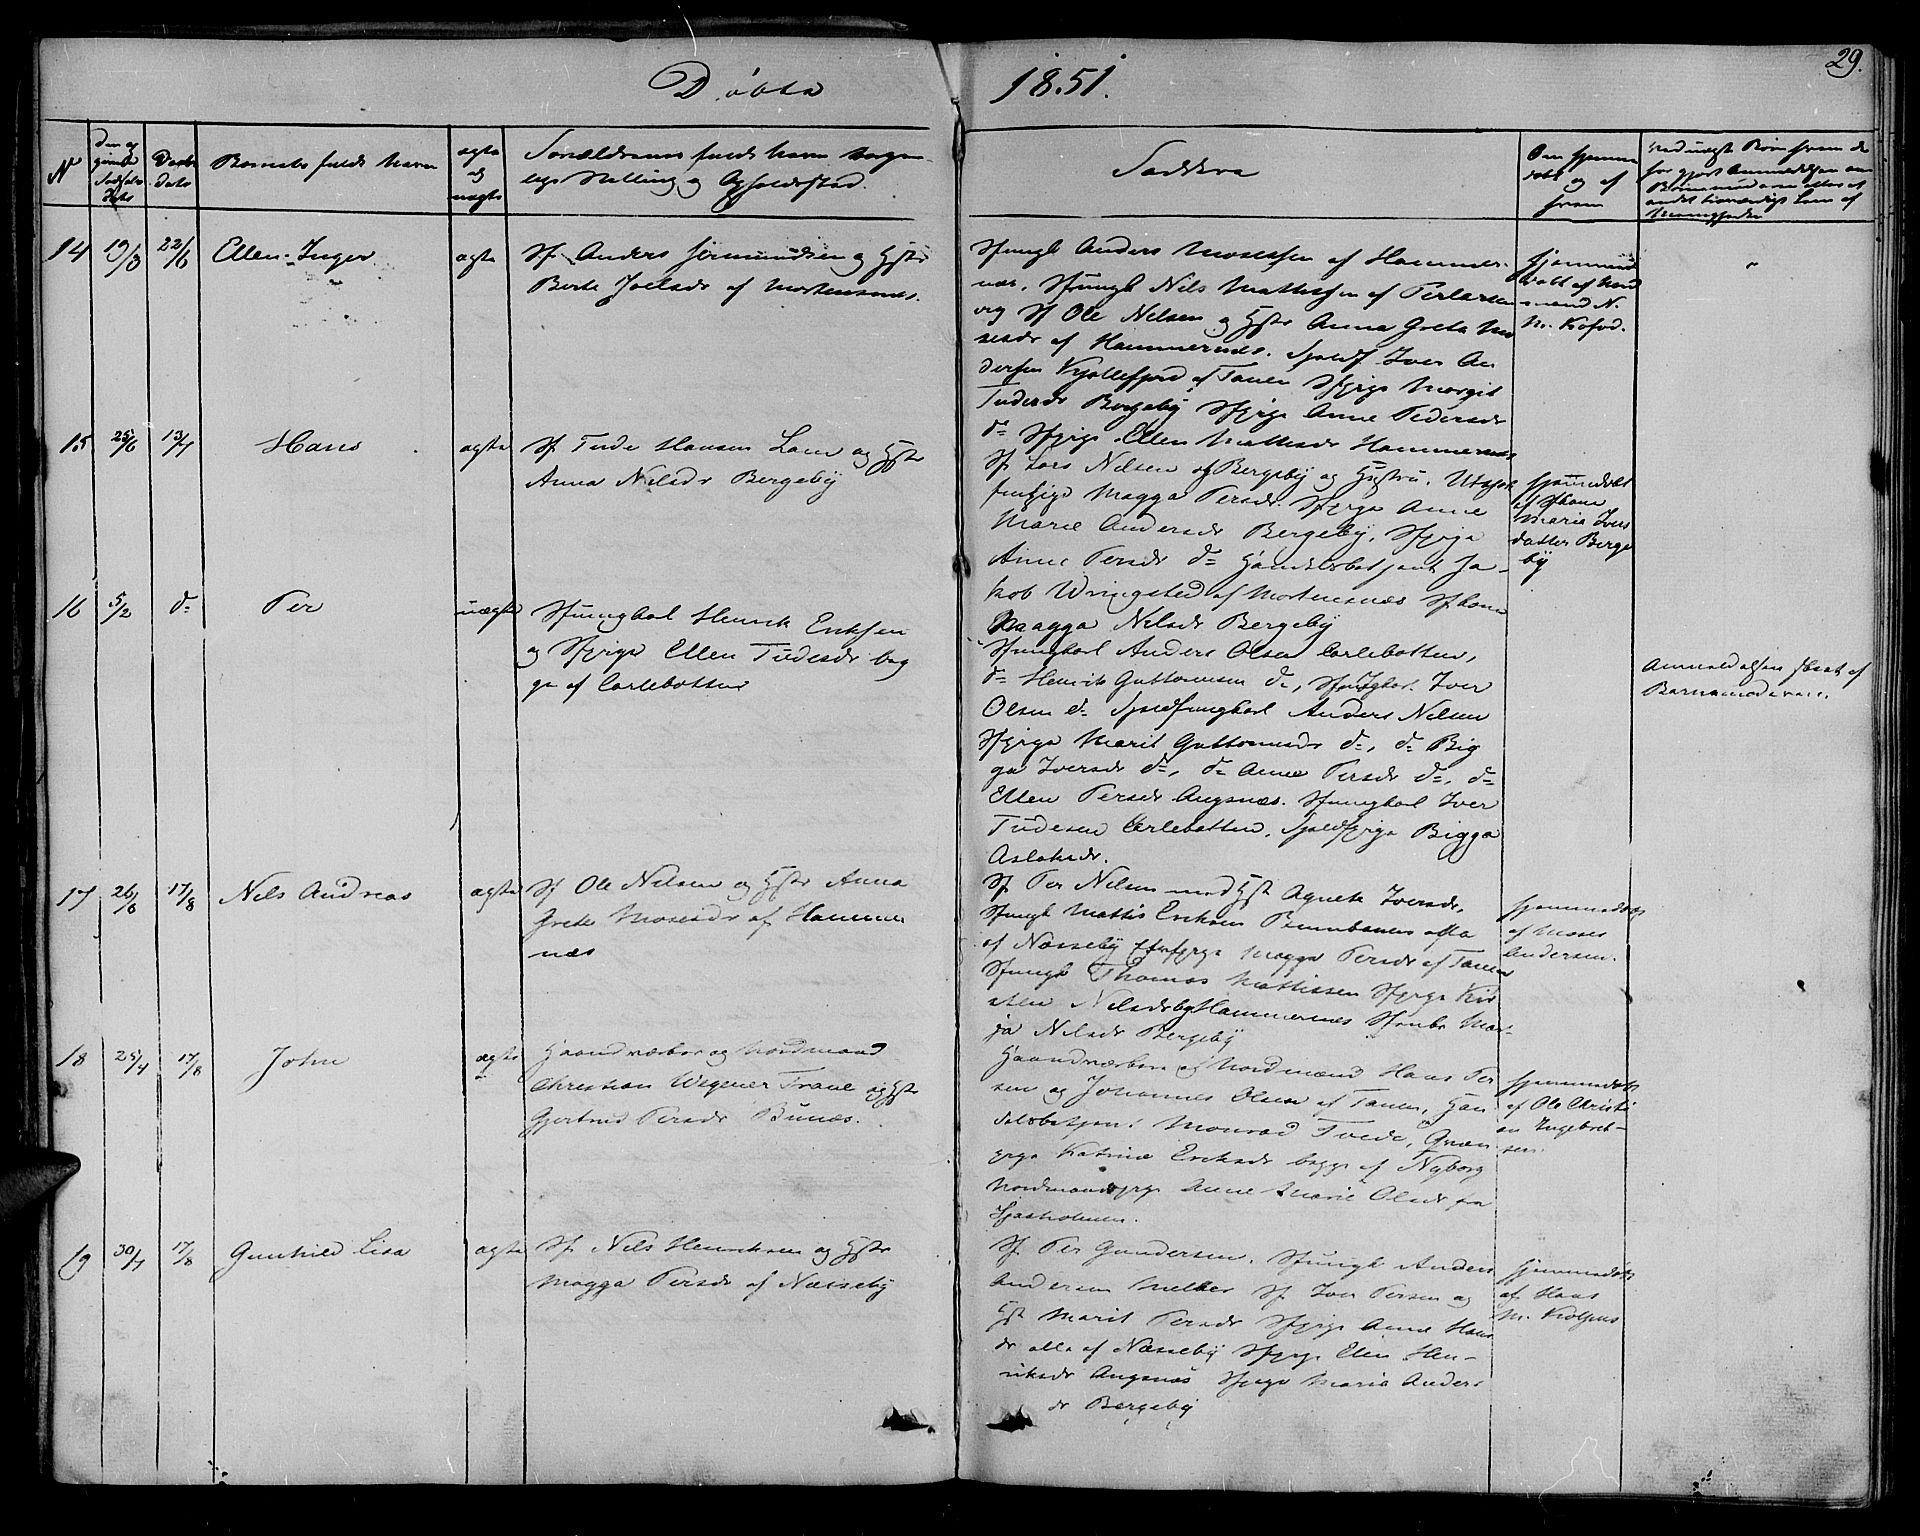 29.
Døbte
1851.
N
Daabs
dato
Barnets fulde Navn
ægte
og
uægte
Forældrenes fulde Navn borger-
lige Stilling og Opholdsted.
Faddere
Om hjemme
døbt og af
hvem
14 19/3 22/6 Ellen Inger ægte
Sf. Anders og Hstr
Berte Joelsdr af Mortensnæs.
Sfungk Anders Mosessen af Hammer-
næs, Sfungk Nils Mathissen af
Sf Ole Nilsen og Hstr Anna Greta Mo
sesdr af Hammernæs. Iver An
dersen Kjøllefjord af Tanen Sfpige Margit
Tudesdr Bergeby Sfpige Anne Pedersdr
do Sfpige Ellen Mattisdr Hammernæs
N.
M. Kofod.
15 25/6 13/7 Hans ægte
Sf Tude Hansen Lam og Hstr
Anna Nilsdr Bergeby
Sf Lars Nilsen af Bergeby og Hustru,
Magga Persdr. Sfpige Anne
Marie Andersdr Bergeby, Sfpige
Anne Persdr do Handelsbetjent Ja-
kob Wringsted af Mortensnæs Sfkone
Magga Nilsdr Bergeby
hjemmedøbt
af Sfkone
Maria Ivers
datter Berge
by
16 5/2 do Per uægte
Sfungkarl Henrik Eriksen
og Sfpige Ellen Tudesdr beg
ge af Carlebotten
Sfungkarl Anders Olsen Carlebotten,
do Henrik Guttormsen do, Sfungkarl Iver
Olsen do Anders Nilsen
Sfpige Marit Guttormsdr do, do Big
ga Iversdr do, do Anne Persdr do, do
Ellen Persdr Angsnæs. Sfungkarl Iver
Tudesen Carlebotten, Bigga
Aslaksdr.
Anmeldelsen skeet af
Barnemoderen.
17 26/6 17/8 Nils Andreas ægte
Sf Ole Nilsen og Hstr Anna
Grete Mosesdr af Hammer
næs
Sf Per Nilsen med Hst Agnete Iversdr,
Sfungk Mattis Eriksen
af Næsseby Magga Persdr af Tanen
Sfungk Thomas Mattissen Sfpige Kir
sten Nilsdr Hammernæs Mar-
ja Nilsdr Bergeby
hjemmedøbt
af Moses
Andersen.
18 25/4 17/8 John ægte
Haandværker og Nordmand
Christian Wegener Trane og Hstr
Gjertrud Persdr Bunæs.
Haandværkere og Nordmænd Hans Per
sen og Johannes Olsen af Tanen, Han
delsbetjent Monrad Tvede,
pige Katrine Eriksdr begge af Nyborg
Nordmandspige Anne Marie Olsdr fra
hjemmedøbt
af Ole Christi
an Ingebret-
sen.
19 30/7 17/8 Gunhild Lisa ægte
Sf. Nils Henriksen og Hstr
Magga Persdr af Næsseby
Sf Per Gundersen, Sfungk Anders
Andersen Sf Iver Persen og
Hst Marit Persdr Sfpige Anne Hans
dr alle af Næsseby Sfpige Ellen Hen-
riksdr Angsnæs Sfpige Maria Anders
dr Bergeby
hjemmedøbt
af Hans
M.